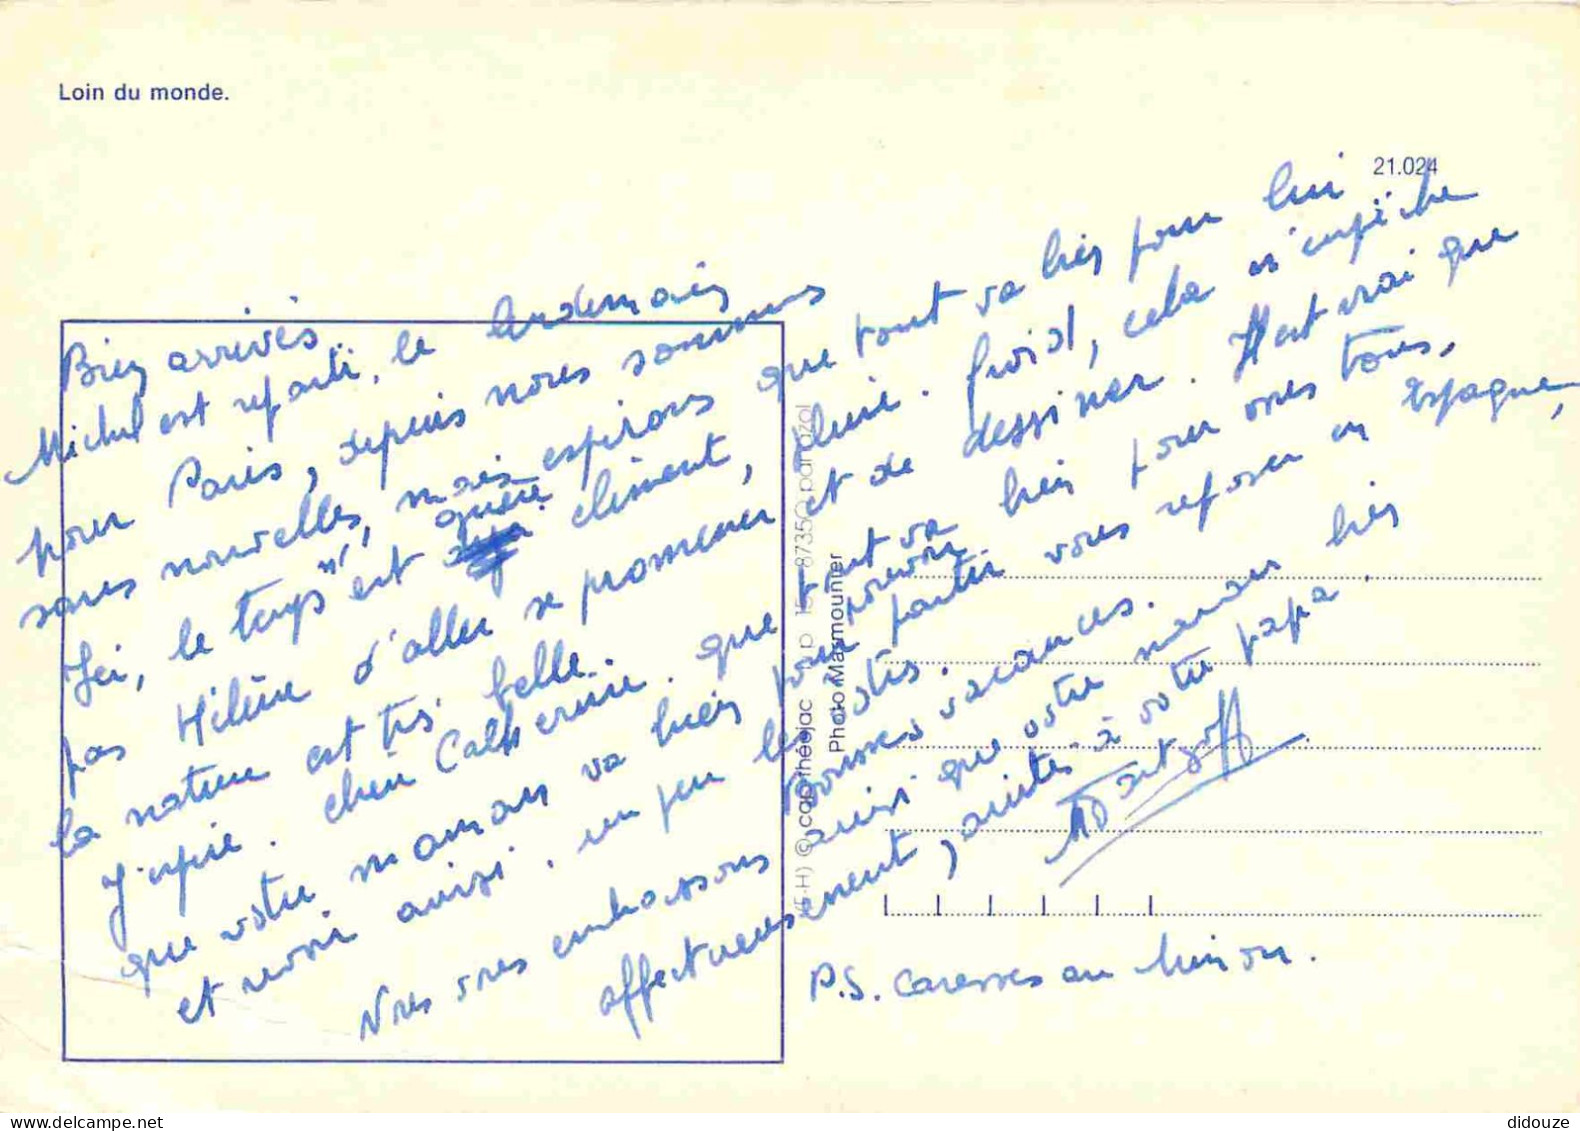 Loin du monde.
21.024
Bien arrivés.
Michel est reparti, le lendemain
pour Paris, depuis nous sommes
sans nouvelles, mais espérons que tout va bien pour lui
Ici, le temps n'est guère clément, pluie. froid, cela n'empêche
pas Hélène d'aller se promener et de dessiner. Il est vrai que
la nature est très belle.
J'espère. chère Catherine. que tout va bien pour vous tous,
que votre maman va bien pour pouvoir partir vous reposer en Espagne,
et ainsi. un peu
Nous vous embrassons ainsi que votre maman bien
Bonnes vacances.
affectueusement, amitiés à votre papa.
P.S. Caresses au Minou.
(E-H) © cap-théojac 87350 panazol
Photo Marmounier
didouze